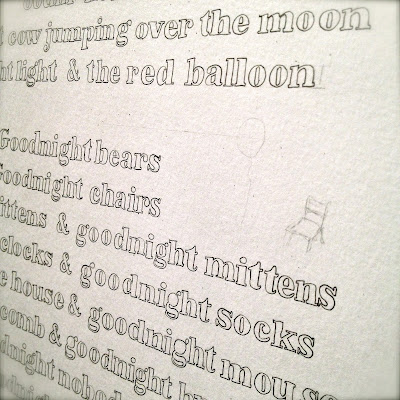 cow jumping over the moon
light & the red balloon
Goodnight bears
Goodnight chairs
ittens & goodnight mittens
clocks & goodnight socks
house & goodnight mouse
comb & goodnight